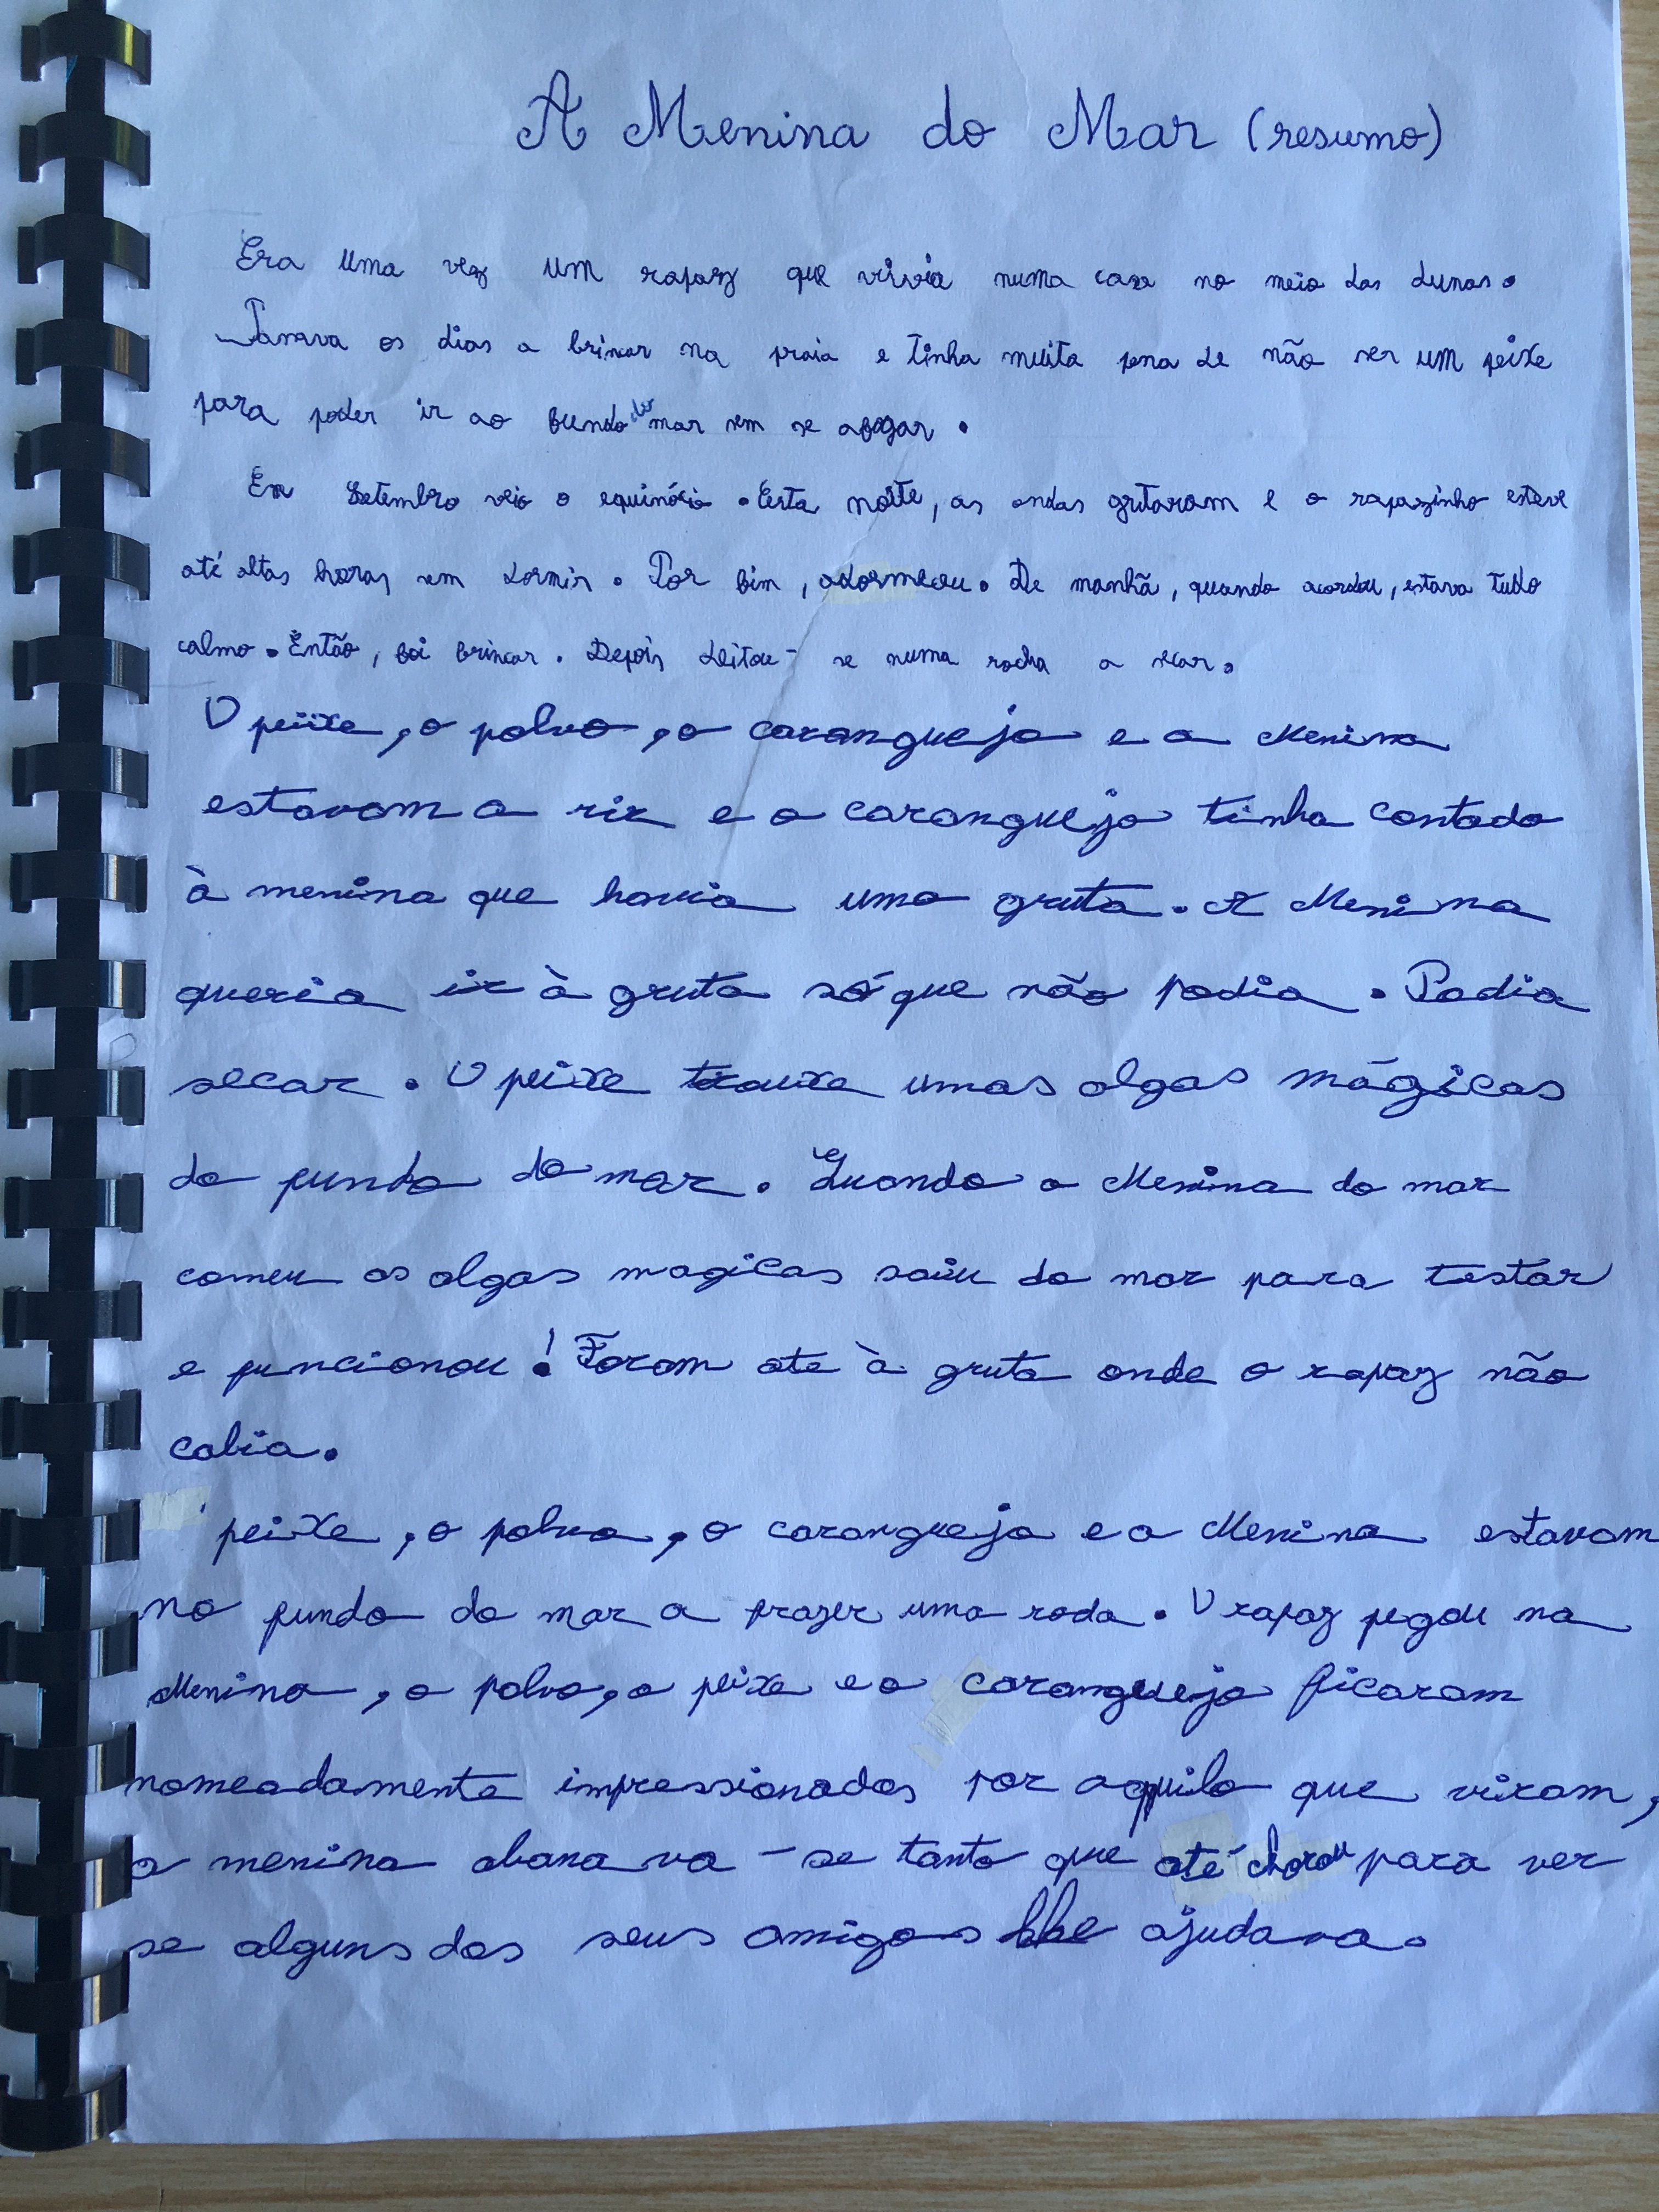 A Menina do Mar (resumo)
Era uma vez um rapaz que vivia numa casa no meio das dunas.
Passava os dias a brincar na praia e tinha muita pena de não ser um peixe
para poder ir ao fundo do mar sem se afogar.
Em Setembro veio o equinócio. Certa noite, as ondas gritaram e o rapazinho esteve
até altas horas sem dormir. Por fim, adormeceu. De manhã, quando acordou, estava tudo
calmo. Então, foi brincar. Depois deitou-se numa rocha a secar.
O peixe, o polvo, o caranguejo e a Menina
estavam a rir e o caranguejo tinha contado
à menina que havia uma gruta. A Menina
queria ir à gruta só que não podia. Podia
secar. O peixe trouxe umas algas mágicas
do fundo do mar. Quando a Menina do mar
comeu as algas magicas saíu do mar para testar
e funcionou! Foram ate à gruta onde o rapaz não
cabia.
peixe, o polvo, o caranguejo e a Menina estavam
no fundo do mar a frazer uma roda. O rapaz pegou na
Menina, o polvo, o peixe e o caranguejo ficaram
nomeadamente impressionados por aquilo que viram,
a menina abanava-se tanto que até chorou para ver
se alguns dos seus amigos lhe ajudava.